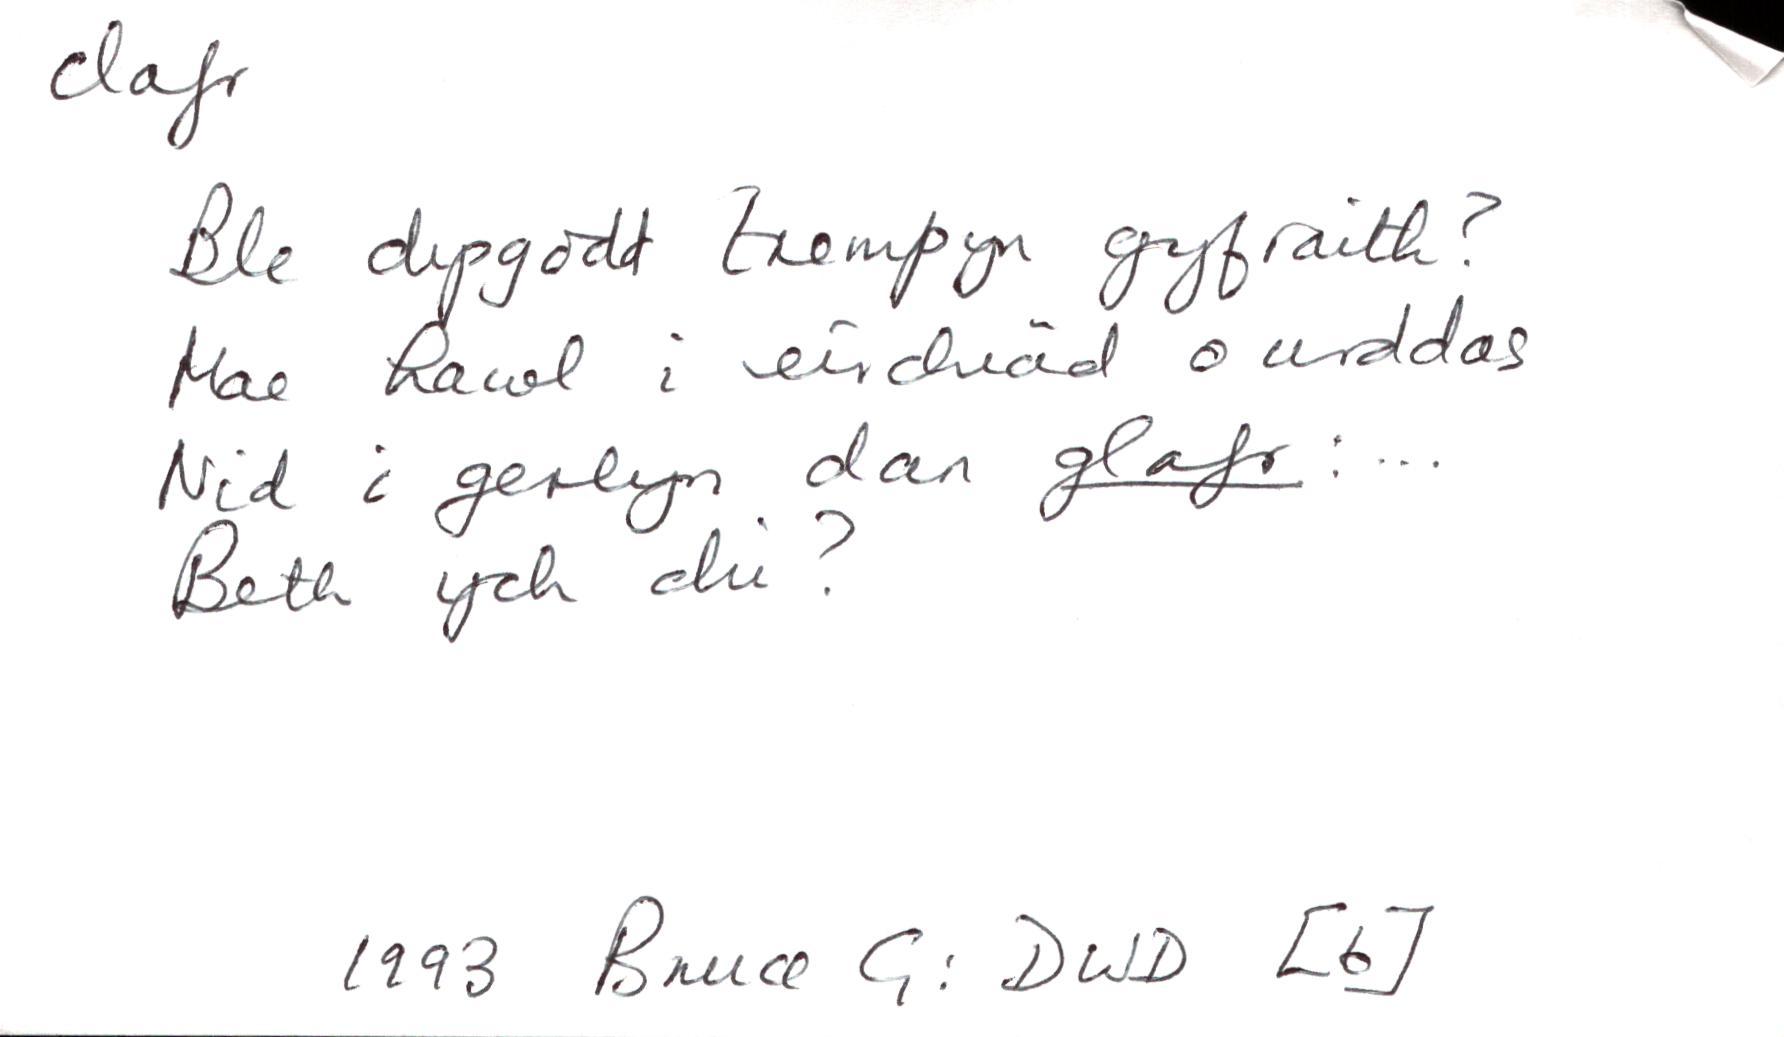 clafr
Ble dysgodd trempyn gyfraith?
Mae hawl i eirchiad o urddas
Nid i gerlyn dan glafr: ...
Beth ych chi?
1993 Bruce G: DWD [6]